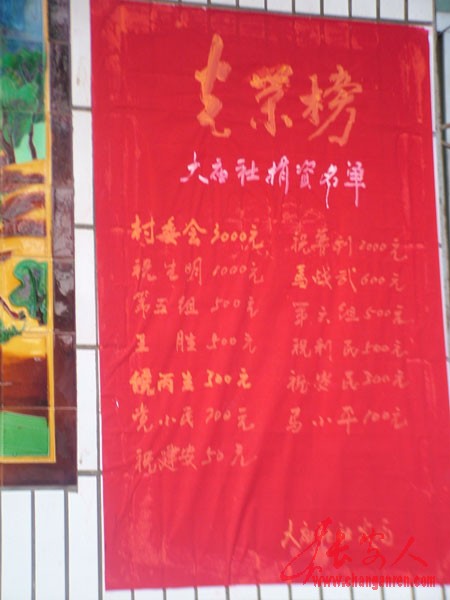 光荣榜
大庙社捐资名单
村委会 3000元
祝生明 1000元 马战武 600元
第五组 500元 第六组 500元
王胜 500元 祝利民 500元
300元 祝 民 300元
党小民 200元 马小平 100元
祝建安 50元
长安人
www.changanren.com